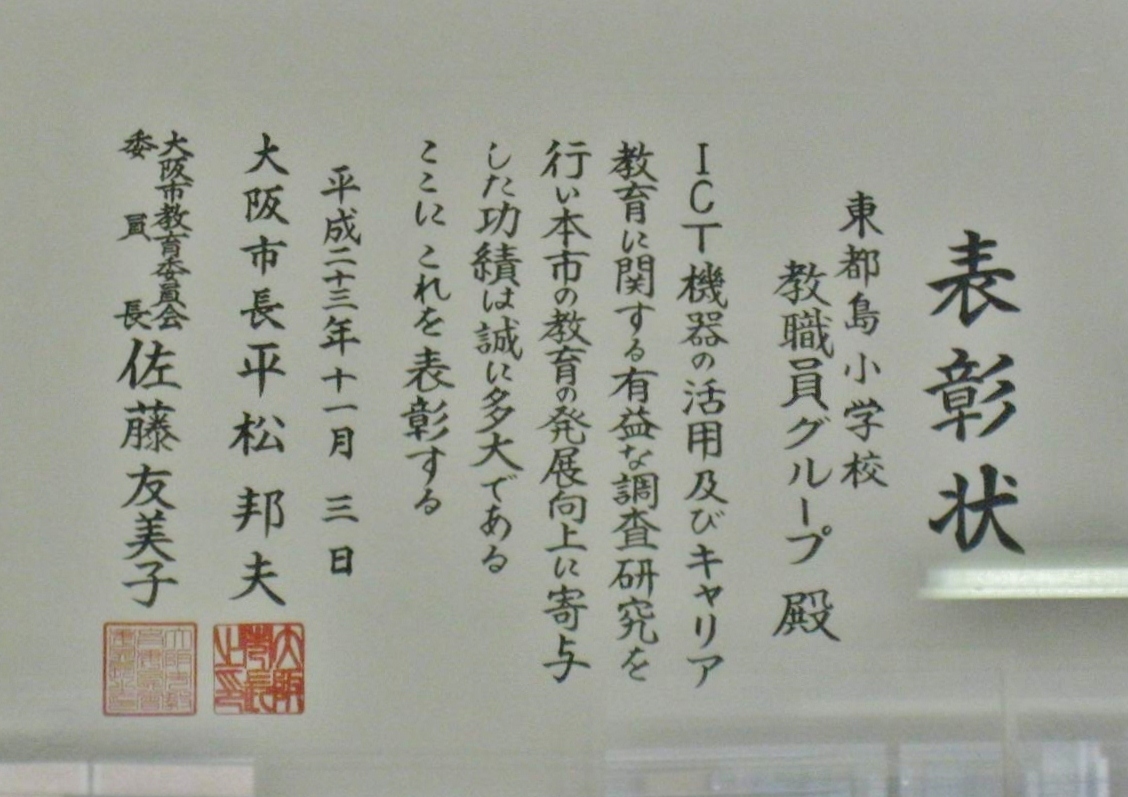 表彰状
東都島小学校
教職員グループ 殿
ICT機器の活用及びキャリア
教育に関する有益な調査研究を
行い本市の教育の発展向上に寄与
した功績は誠に多大である
ここに これを表彰する
平成二十三年十一月 三日
大阪市長 平松 邦夫
大阪市教育委員会
委員長 佐藤友美子
大阪
市長
之印